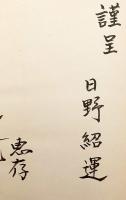 謹呈 日野紹運
惠存